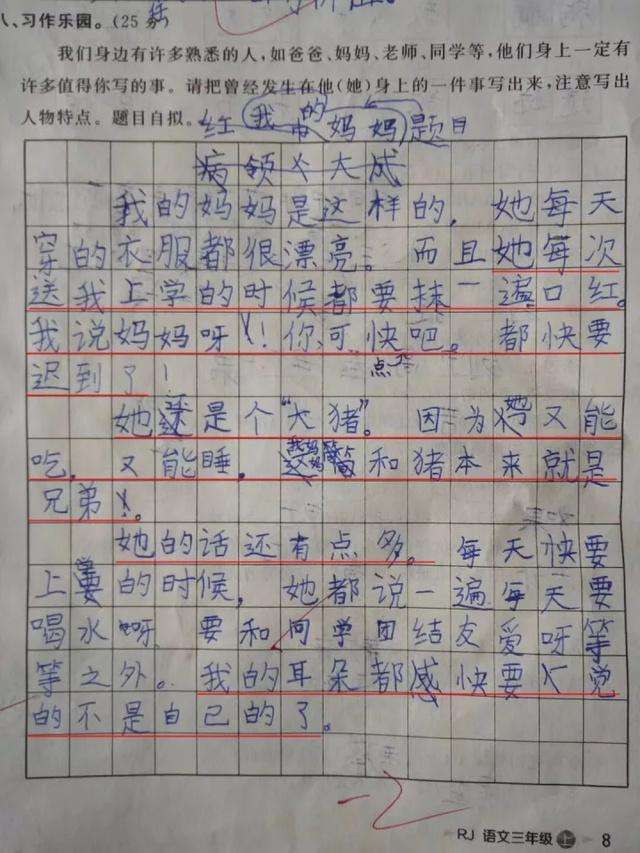 八、习作乐园。(25 分)
我们身边有许多熟悉的人,如爸爸、妈妈、老师、同学等,他们身上一定有
许多值得你写的事。请把曾经发生在他(她)身上的一件事写出来,注意写出
人物特点。题目自拟。
红 我的妈妈 题目
病领人大成
我的妈妈是这样的,她每天
穿的衣服都很漂亮。而且她每次
送我上学的时候都要抹一遍口红。
我说妈妈呀!你可快点吧。都快要
迟到了!
她还是个“大猪”。因为她又能
吃,又能睡。我妈妈和猪本来就是
兄弟。
她的话还有点多。每天快要
上学的时候,她都说一遍每天要
喝水呀 要和同学团结友爱呀等
等之外。我的耳朵都感快要不觉
的不是自己的了。
-2
RJ 语文三年级 上 8